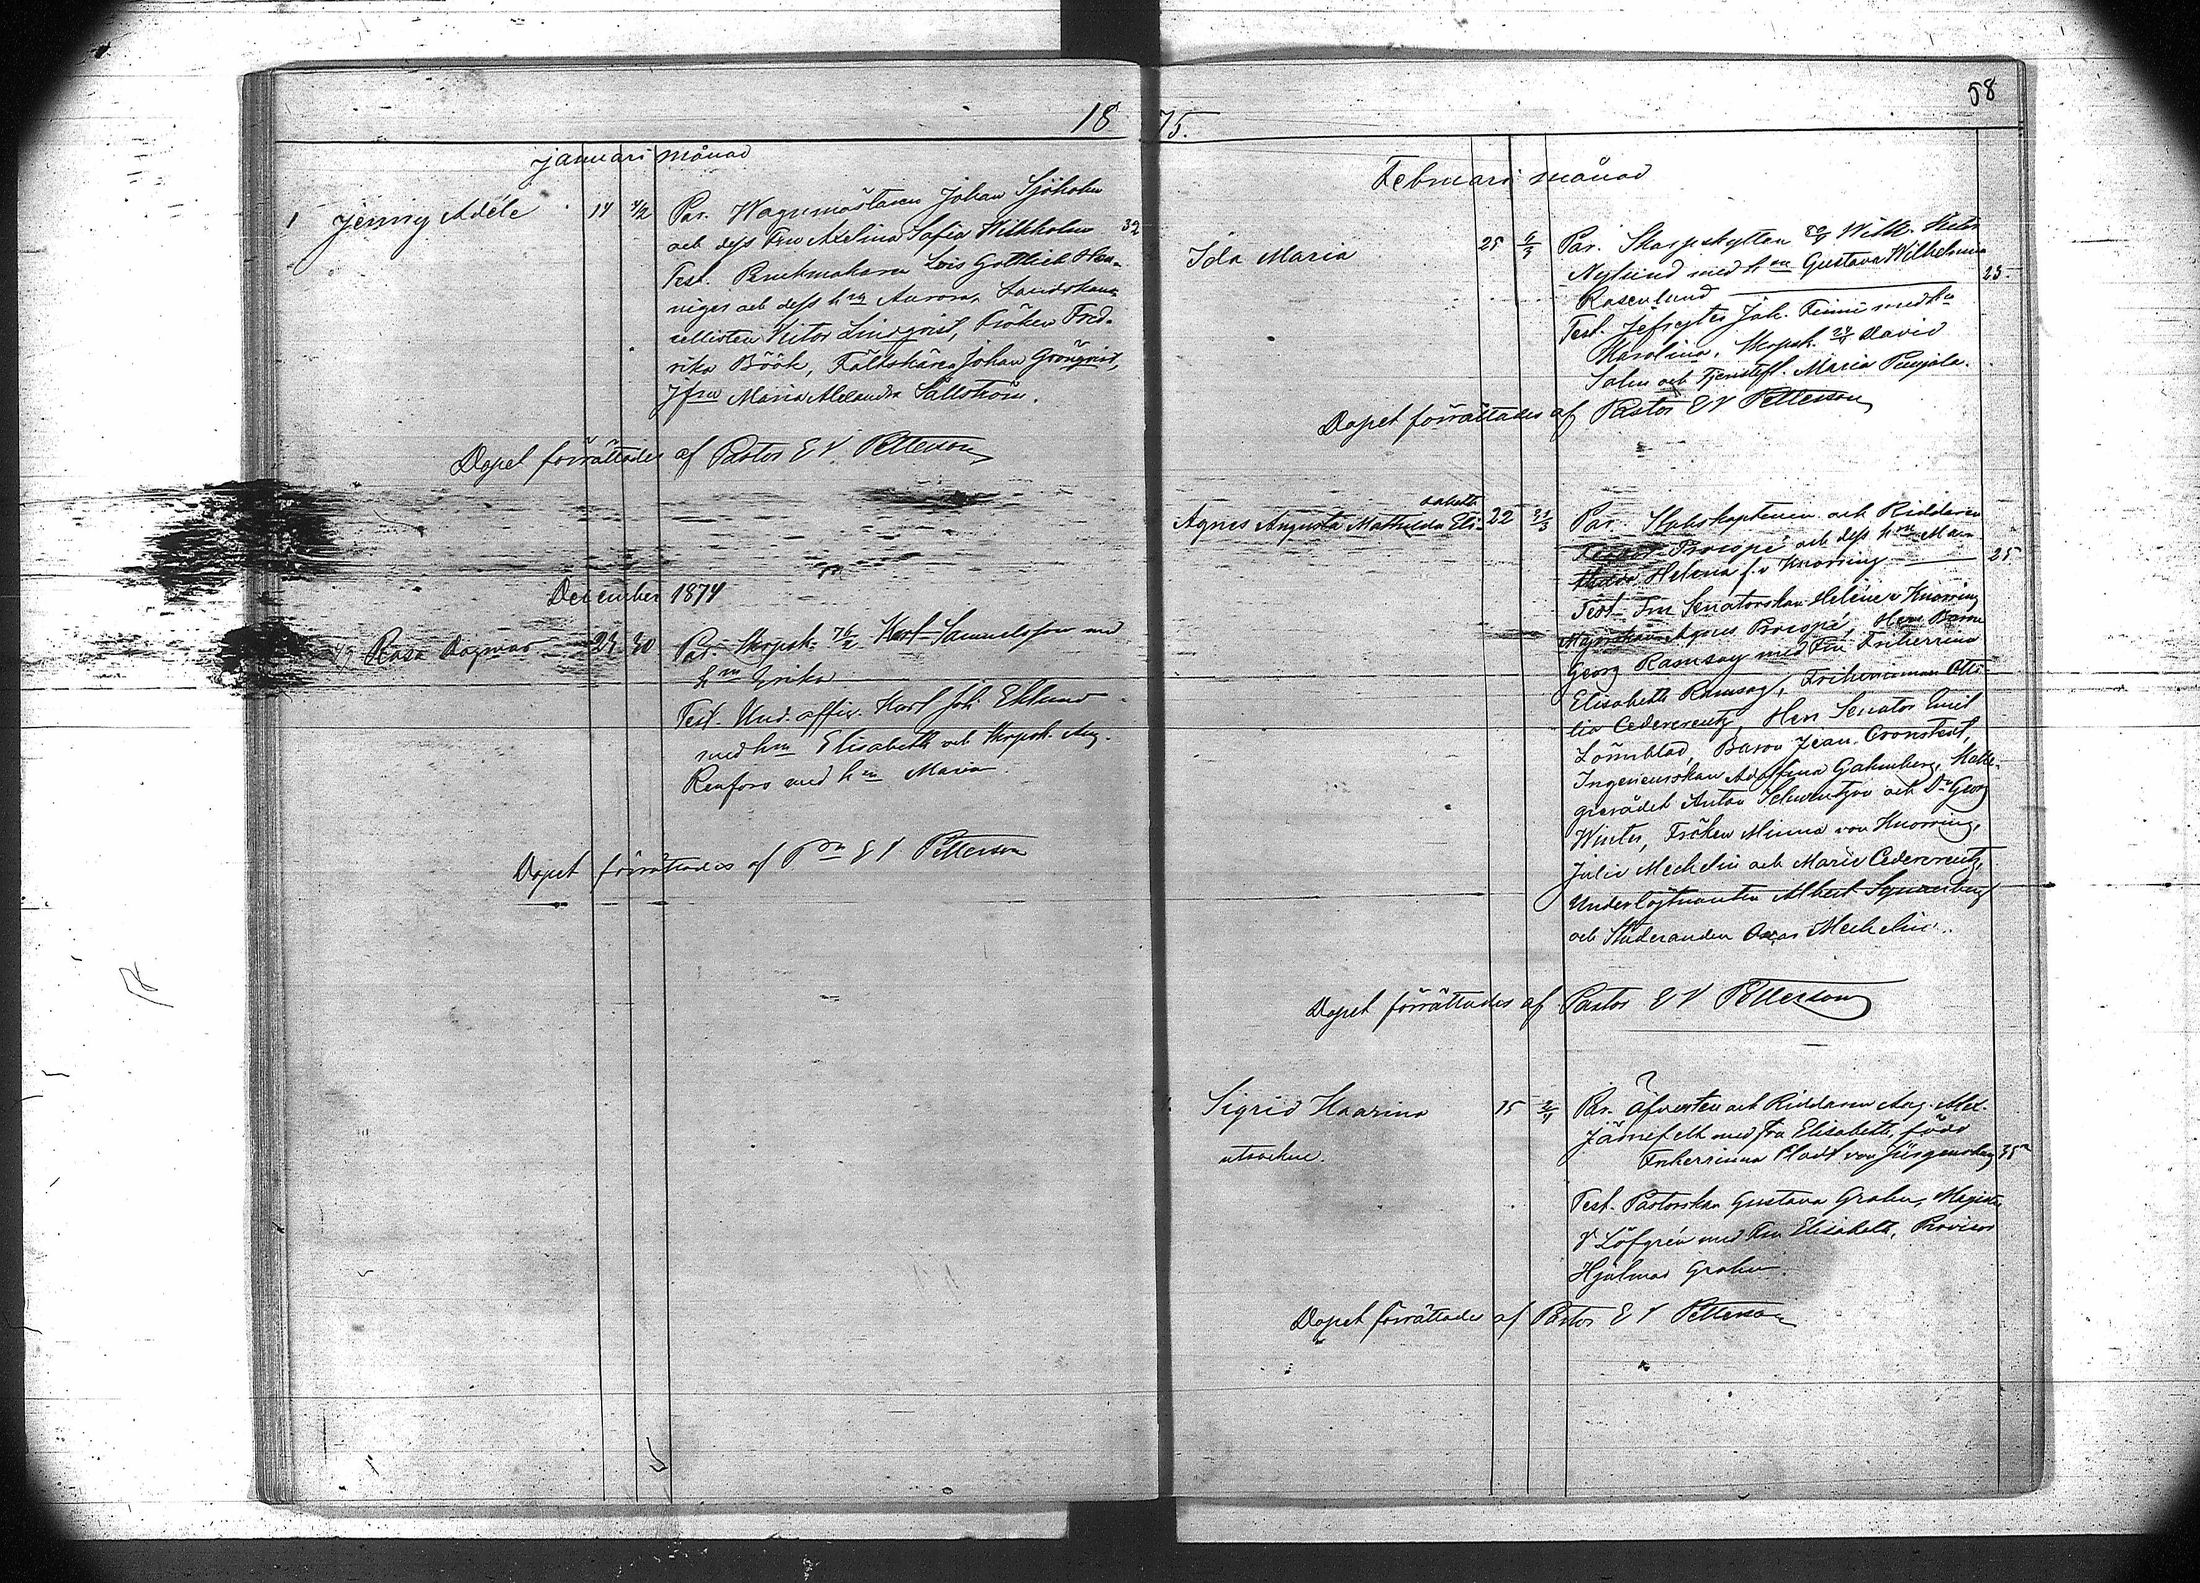 1875.
58
Januari månad
1 Jenny Adéle 14 4/2 Par. Wagnmästaren Johan Sjöholm
och dess Fru Axelina Sofia Wilkholm 32
Test. Bruckmakaren Lois Gottlieb Hen-
niger och dess hu Aurora, Landskan-
cellisten Victor Lindqvist, Fröken Fred-
rika Böök, Fältskären Johan Grönqvist,
Jfru Maria Alexandra Sällström.
Dopet förrättades af Pastor E V Petterson
December 1874
Rosa Dagmar 24 30 Par. Skrpsk. 76/2 Karl Samuelsson med
hu Erika
Test. Und. offic. Karl Joh. Eklund
med hu Elisabeth och Skrpsk. Aug.
Renfors med hu Maria.
Dopet förrättades af Pr E V Petterson
Februari månad
Ida Maria 25 6/3 Par. Skarpskytten Wilh. Victor
Nylund med hu Gustava Wilhelmina 23.
Rosenlund
Test. Jefreyter Joh. Finni med hu
Karolina, Skrpsk. David
Salin och Tjenstefl. Maria Punjala.
Dopet förrättades af Pastor E V Petterson
sabeth
Agnes Augusta Mathilda Eli- 22 21/3 Par. Stabskaptenen och Riddaren
Procopé och dess hu Ma-
Helena f. v Knorring 25
Test. Fru Senatorskan Helene v Knorring
Majorskan Agnes Procopé, Herr Baron
Georg Ramsay med Fru Friherrinna
Elisabeth Ramsay, Friherrinnan Otti-
lia Cedercreutz, Herr Senator Emil
Baron Jean Cronstedt,
Ingenieurskan Adolfina Gahmberg, Kolle-
gierådet Anton Schwentzon och Dr Georg
Winter, Fröken Minna von Knorring,
Julie Mechelin och Marie Cedercreutz,
Underlöjtnanten Albert
och Studeranden Oscar Mechelin.
Dopet förrättades af Pastor E V Petterson
Sigrid Kaarina 15 2/4 Par. Öfversten och Riddaren Aug. Alex.
Järnefelt med fru Elisabeth, född
utsockne. Friherrinna Clodt von Jürgensburg 35
Test. Pastorskan Gustava Grahn, Magister
V Löfgrén med Fru Elisabeth, Provisor
Hjalmar Grahn.
Dopet förrättades af Pastor E V Petterson